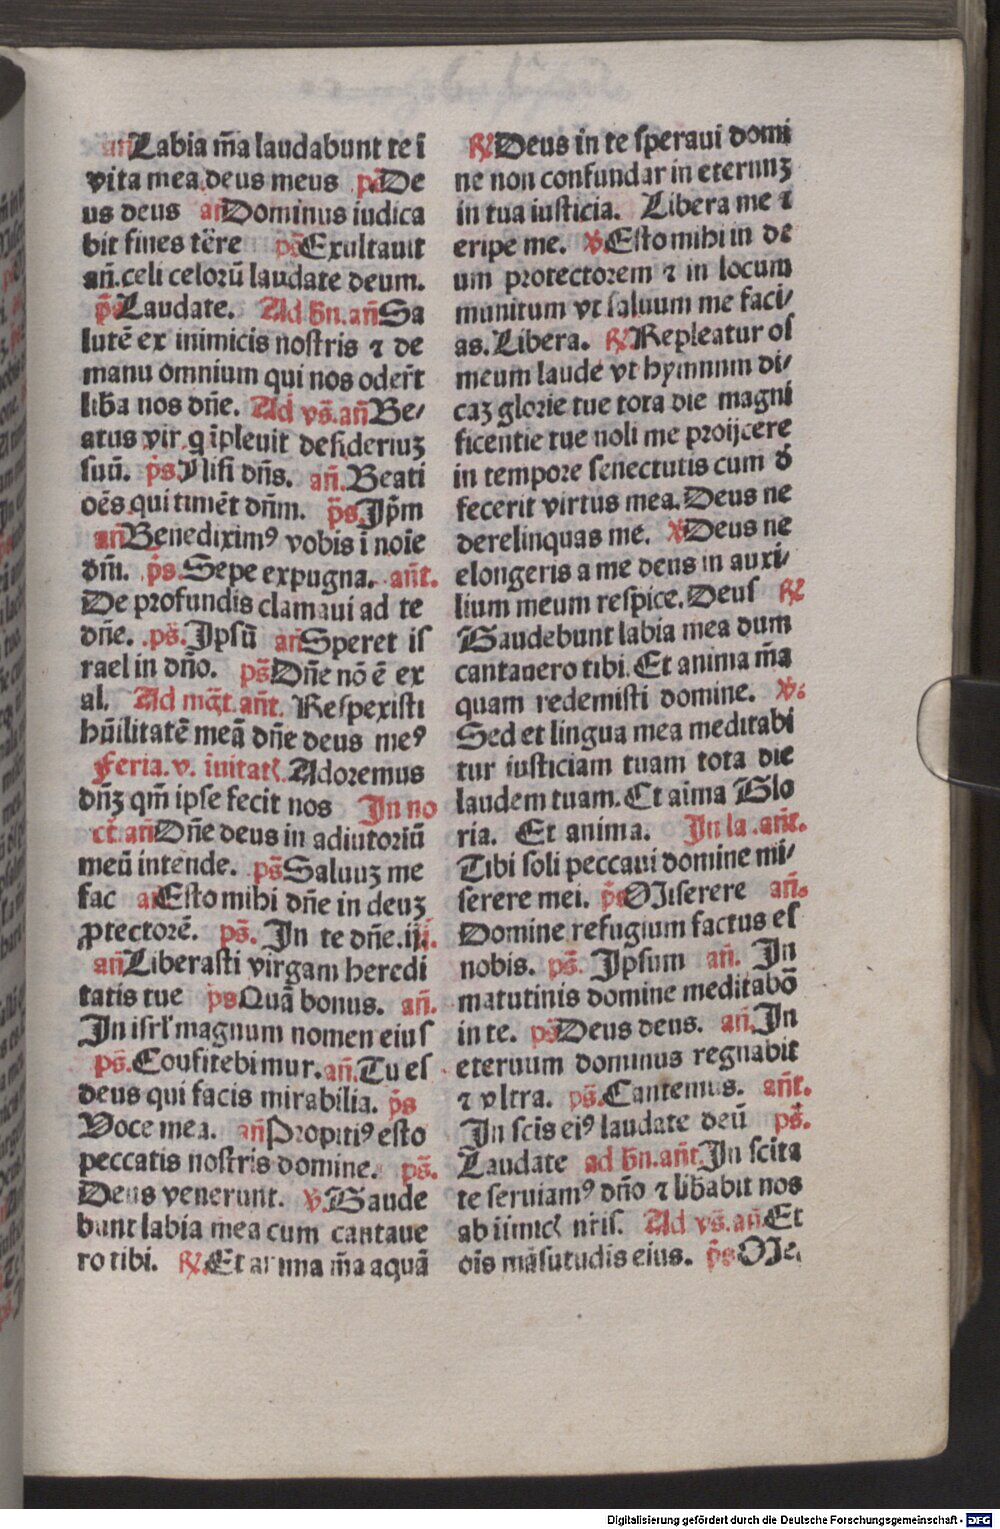 añLabia m̃a laudabunt te ī
vita mea deus meus p̄sDe
us deus añDominus iudica
bit fines terre p̄sExultauit
añ.celi celorū laudate deum.
p̄sLaudate. Ad bn̄.añSa
lutē ex inimicis nostris ⁊ de
manu omnium qui nos oder̄t
liba nos dñe. Ad vs̄.añBe⸗
atus vir q īpleuit desideriuꝫ
suū. p̄s.Nisi dñs. añ.Beati
oēs qui timēt dñm. p̄s.Ip̄m
añBenediximꝰ vobis ī noīe
dm̄. p̄s.Sepe expugna. añt.
De profundis clamaui ad te
dñe. p̄s.Ipsū añSperet is
rael in dño. ps̄Dñe nō ē ex
al. Ad mag̃t.añt. Respexisti
hūilitatē meā dñe deus meꝰ
Feria.v. īuitatꝭ Adoremus
dñꝫ qm̄ ipse fecit nos In no
ct̄.añDñe deus in adiutoriū
meū intende. ps̄Saluuꝫ me
fac añEsto mihi dñe in deuꝫ
ꝓtectorē. ps̄. In te dñe.ij.
añLiberasti virgam heredi
tatis tue psQuā bonus. añ.
In isrl' magnum nomen eius
ps̄.Confitebimur.añ.Tu es
deus qui facis mirabilia. p̄s
Voce mea. añPropitiꝰ esto
peccatis nostris domine. ps̄.
Deus venerunt. ℣.Gaude
bunt labia mea cum cantaue
ro tibi. ℟.Et anima m̄a aquā
℟Deus in te speraui domi
ne non confundar in eternuꝫ
in tua iusticia. Libera me ⁊
eripe me. ℣Esto mihi in de
um protectorem ⁊ in locum
munitum vt saluum me faci⸗
as.Libera. ℟Repleatur os
meum laude vt hymnum di⸗
caꝫ glorie tue tota die magni
ficentie tue noli me proijcere
in tempore senectutis cum d̄
fecerit virtus mea.Deus ne
derelinquas me. ℣Deus ne
elongeris a me deus in auxi⸗
lium meum respice.Deus ℟
Gaudebunt labia mea dum
cantauero tibi.Et anima m̄a
quam redemisti domine. ℣.
Sed et lingua mea meditabi
tur iusticiam tuam tota die
laudem tuam.Et aīma Glo
ria. Et anima. In la.añt.
Tibi soli peccaui domine mi⸗
serere mei. p̄sMiserere añ.
Domine refugium factus es
nobis. ps̄. Ipsum añ. In
matutinis domine meditabō
in te. ps̄Deus deus. añ.In
eternum dominus regnabit
⁊ vltra. ps̄.Cantemus. añt.
In scīs eiꝰ laudate deū ps̄.
Laudate ad bn̄.añt.In scita
te seruiamꝰ dño ⁊ libabit nos
ab iimicꝭ nr̄is. Ad vs̄.añ.Et
oīs māsutudis eius. p̄sMe⸗
Digitalisierung gefördert durch die Deutsche Forschungsgemeinschaft - DFG